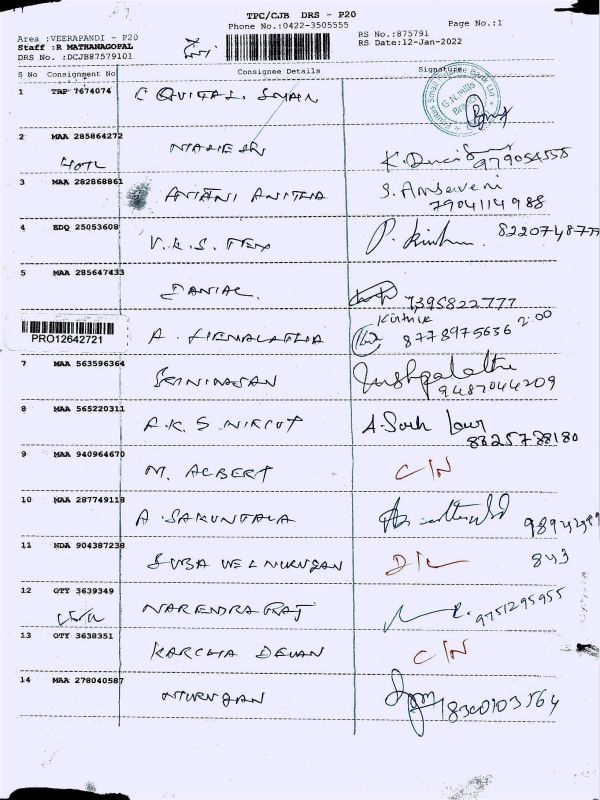 TPC/CJB DRS - P20
Phone No.:0422-3505555
Page No.:1
Area :VEERAPANDI - P20
Staff :R MATHANAGOPAL
DRS No. :DCJB87579101
RS No.:875791
RS Date:12-Jan-2022
S No Consignment No Consignee Details Signature
1 TRP 7674074
G.N.mills
2 MAA 285864272
979054558
3 MAA 282868861 ANITHA S.
7904114988
4 EDQ 25053608 V.K.S. TEX P. 8220748777
5 MAA 285647433 DANIAL 7395822777
PRO12642721 A. HEMALATHA 8778975636 2.00
7 MAA 563596364 SRINIVASAN Pushpalatha
9487044209
8 MAA 565220311 A.K.S
8825788180
9 MAA 940964670 M. ALBERT C/N
10 MAA 287749118 A. SAKUNTALA
11 NDA 904387238 SUBA VEL MURUGAN D/L 843
12 OTY 3639349 NARENDRA RAJ 9751295955
13 OTY 3638351 C/N
14 MAA 278040587 MURUGAN